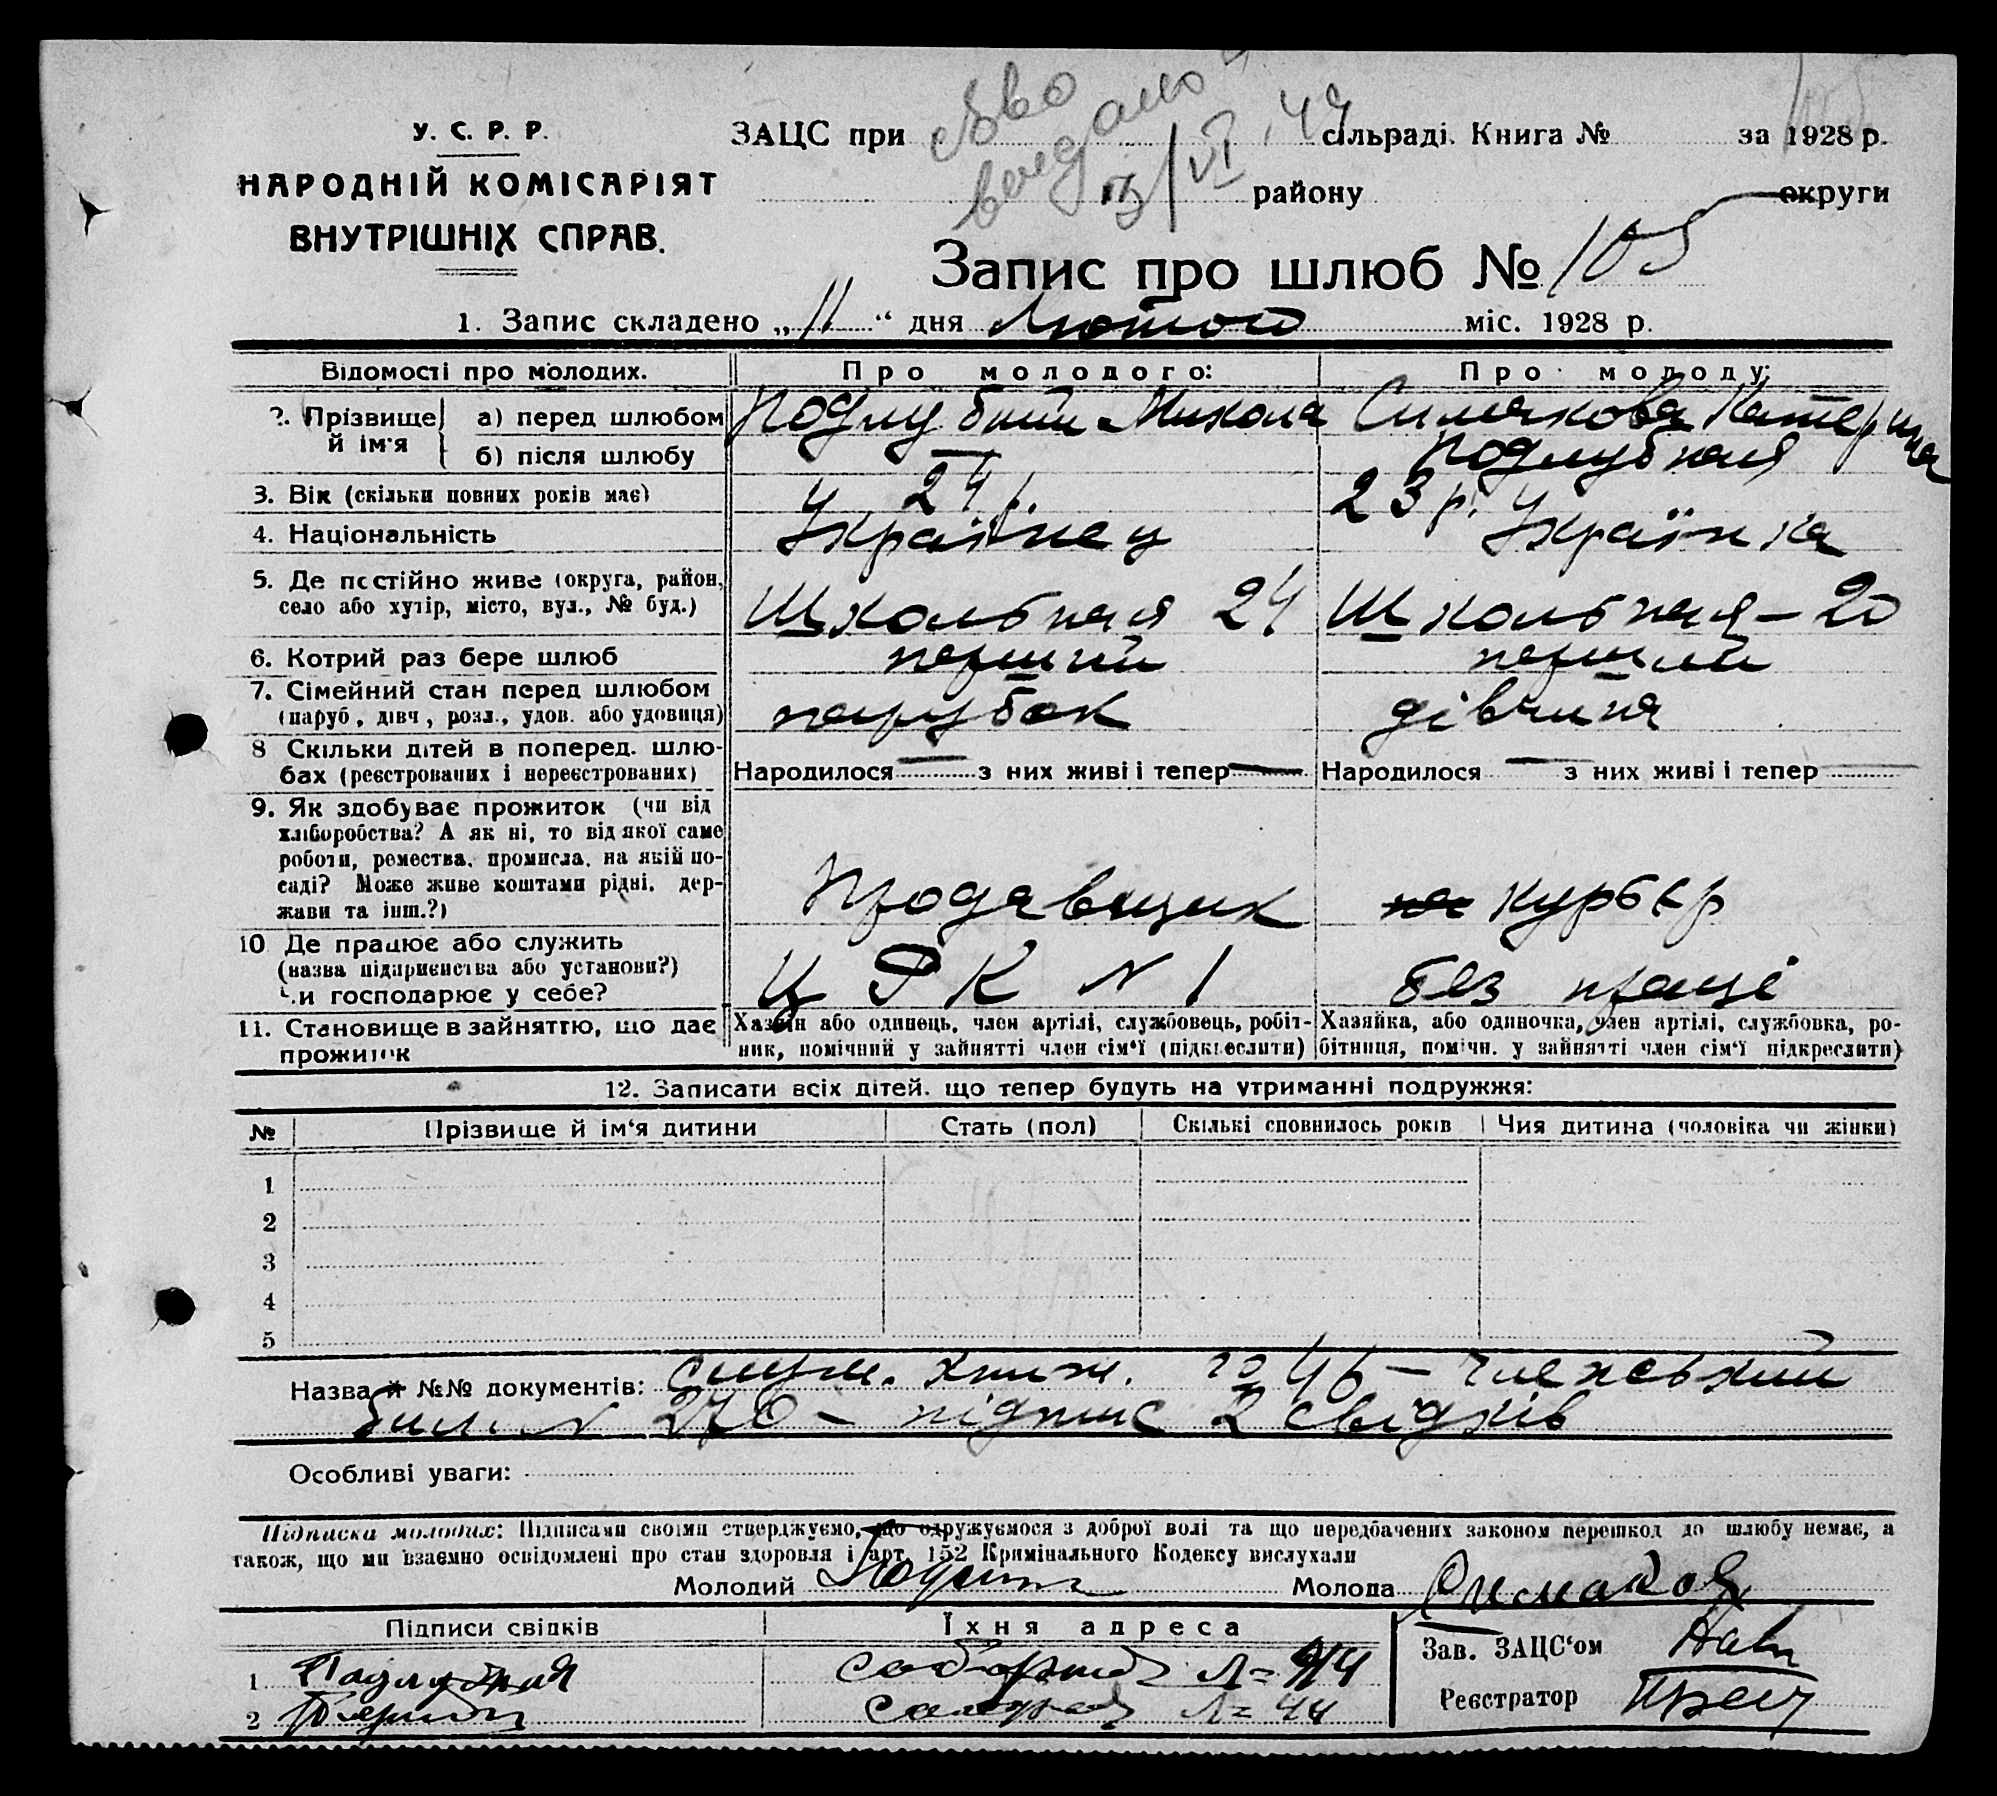 У. С. Р. Р.
НАРОДНІЙ КОМІСАРІЯТ
ВНУТРІШНІХ СПРАВ.
ЗАЦС при сільраді. Книга № за 1928 р.
району округи
Св-во
видано
13/VI.44
105
Запис про шлюб № 105
1. Запис складено „11“ дня Лютого міс. 1928 р.
Відомості про молодих.
Про молодого:
Про молоду:
2. Прізвище й ім'я
а) перед шлюбом
Подлубний Микола
Симакова Катерина
б) після шлюбу
—
Подлубная
3. Вік (скільки повних років має)
24 р.
23 р.
4. Національність
Українец
Українка
5. Де постійно живе (округа, район, село або хутір, місто, вул., № буд.)
Школьная 24
Школьная – 20
6. Котрий раз бере шлюб
перший
перший
7. Сімейний стан перед шлюбом
(паруб, дівч, розл., удов. або удовиця)
парубок
дівчина
8 Скільки дітей в поперед. шлю-
бах (реєстрованих і нереєстрованих)
Народилося — з них живі і тепер —
Народилося — з них живі і тепер —
9. Як здобуває прожиток (чи від
хліборобства? А як ні, то від якої саме
роботи, ремества, промисла, на якій по-
саді? Може живе коштами рідні, дер-
жави та інш.?)
Продавщик
курьєр
10 Де працює або служить
(назва підприємства або установи?)
Чи господарює у себе?
ЦРК N 1
без праці
11. Становище в зайняттю, що дає
прожиток
Хазяїн або одинець, член артілі, службовець, робіт-
ник, помічний у зайнятті член сім'ї (підкреслити)
Хазяйка, або одиночка, член артілі, службовка, ро-
бітниця, помічн. у зайнятті член сім'ї підкреслити)
12. Записати всіх дітей, що тепер будуть на утриманні подружжя:
№ Прізвище й ім'я дитини Стать (пол) Скількі сповнилось років Чия дитина (чоловіка чи жінки)
1
2
3
4
5
Назва й №№ документів: служ. книж. 1046 – членський
билет N 270 – підпис 2 свідків
Особливі уваги:
Підписка молодих: Підписами своїми стверджуємо, що одружуємося з доброї волі та що передбачених законом перешкод до шлюбу немає, а
також, що ми взаємно освідомлені про стан здоровля і арт. 152 Кримінального Кодексу вислухали
Молодий Молода Симакова
Підписи свідків Їхня адреса
1 Подлубная Соборная 44
2 44
Зав. ЗАЦС'ом
Реєстратор